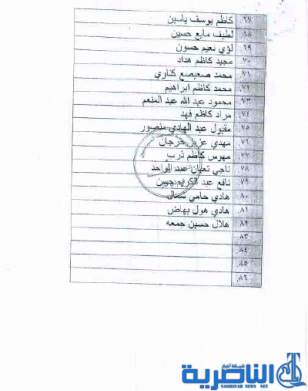 ٦٧ كاظم يوسف ياسين
٦٨ لطيف مايع حسين
٦٩ لؤي نعيم حسون
٧٠ مجيد كاظم هداد
٧١ محمد صعيصع كناوي
٧٢ محمد كاظم ابراهيم
٧٣ محمود عبد الله عبد المنعم
٧٤ مراد كاظم فهد
٧٥ مقبول عبد الهادي منصور
٧٦ مهدي عزيز فرحان
٧٧ مهرس كاظم درب
٧٨ ناجي نعمان عبد الواحد
٧٩ نافع عبد الكريم حسن
٨٠ هادي حامي
٨١ هادي هول بهاض
٨٢ هلال حسين جمعه
٨٣
٨٤
٨٥
٨٦
شبكة اخبار
الناصرية